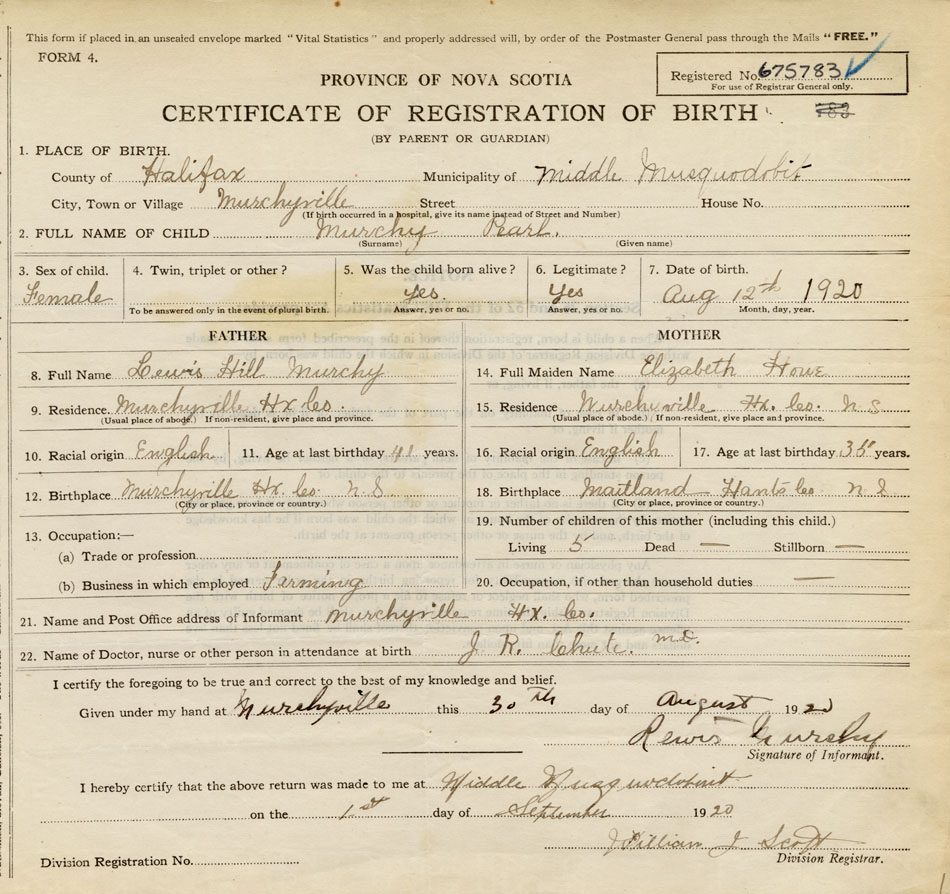 This form if placed in an unsealed envelope marked "Vital Statistics" and properly addressed will, by order of the Postmaster General pass through the Mails "FREE."
FORM 4.
Registered No. 675783
For use of Registrar General only.
PROVINCE OF NOVA SCOTIA
CERTIFICATE OF REGISTRATION OF BIRTH
(BY PARENT OR GUARDIAN)
1. PLACE OF BIRTH.
County of Halifax Municipality of Middle Musquodobit
City, Town or Village Murchyville Street House No.
(If birth occurred in a hospital, give its name instead of Street and Number)
2. FULL NAME OF CHILD Murchy Pearl.
(Surname) (Given name)
3. Sex of child. 4. Twin, triplet or other? 5. Was the child born alive? 6. Legitimate? 7. Date of birth.
Female yes. Yes Aug 12th 1920
To be answered only in the event of plural birth. Answer, yes or no. Answer, yes or no. Month, day, year.
FATHER
8. Full Name Lewis Hill Murchy
9. Residence. Murchyville Hx Co.
(Usual place of abode.) If non-resident, give place and province.
10. Racial origin English 11. Age at last birthday 41 years.
12. Birthplace Murchyville Hx. Co. N S
(City or place, province or country.)
13. Occupation:—
(a) Trade or profession
(b) Business in which employed Ferming
MOTHER
14. Full Maiden Name Elizabeth Howe
15. Residence Murchyville Hx. Co. N S
(Usual place of abode.) If non-resident, give place and province.
16. Racial origin English 17. Age at last birthday 35 years.
18. Birthplace Maitland Hants Co N S
(City or place, province or country.)
19. Number of children of this mother (including this child.)
Living 5 Dead — Stillborn —
20. Occupation, if other than household duties —
21. Name and Post Office address of Informant Murchyville Hx. Co.
22. Name of Doctor, nurse or other person in attendance at birth J R. Chute. M.D.
I certify the foregoing to be true and correct to the best of my knowledge and belief.
Given under my hand at Murchyville this 30th day of August 1920
Lewis Murchy
Signature of Informant.
I hereby certify that the above return was made to me at Middle Musquodoboit
on the 1st day of September 1920
William J Scott
Division Registrar.
Division Registration No.